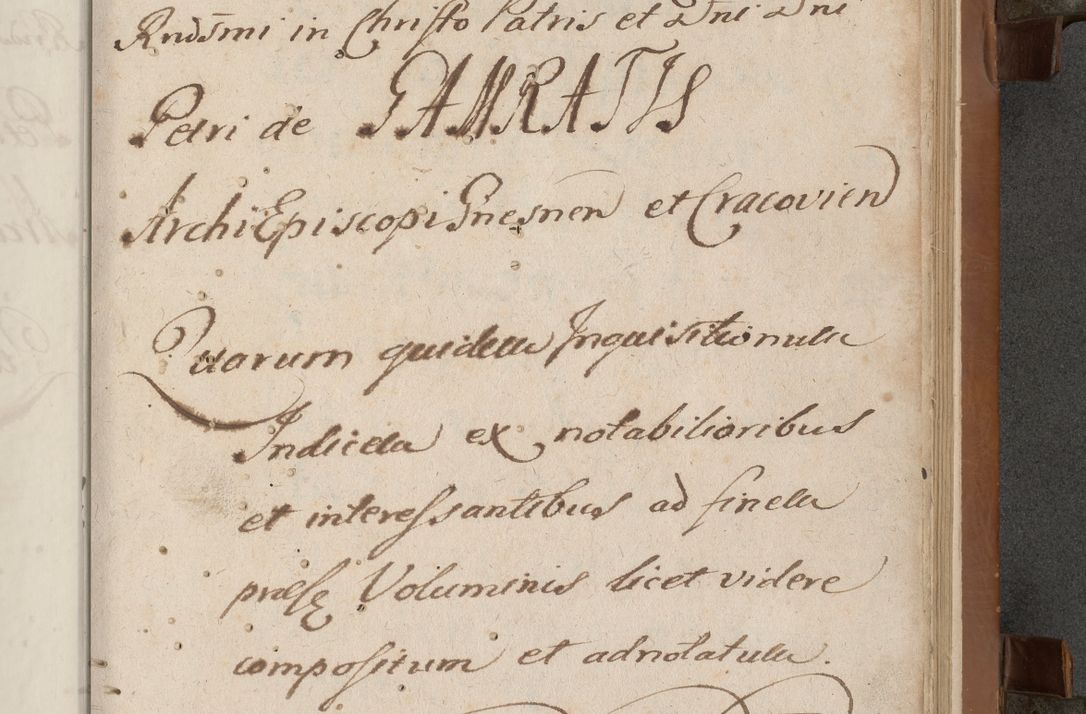 Rndsmi in Christo Patris et Dni Dni
Petri de GAMRATIS
ArchiEpiscopi Gnesnen et Cracovien
Quarum quidem Inquisitionum
Indicem ex notabilioribus
et interessantibus ad finem
præse Voluminis licet videre
compositum et adnotatum.